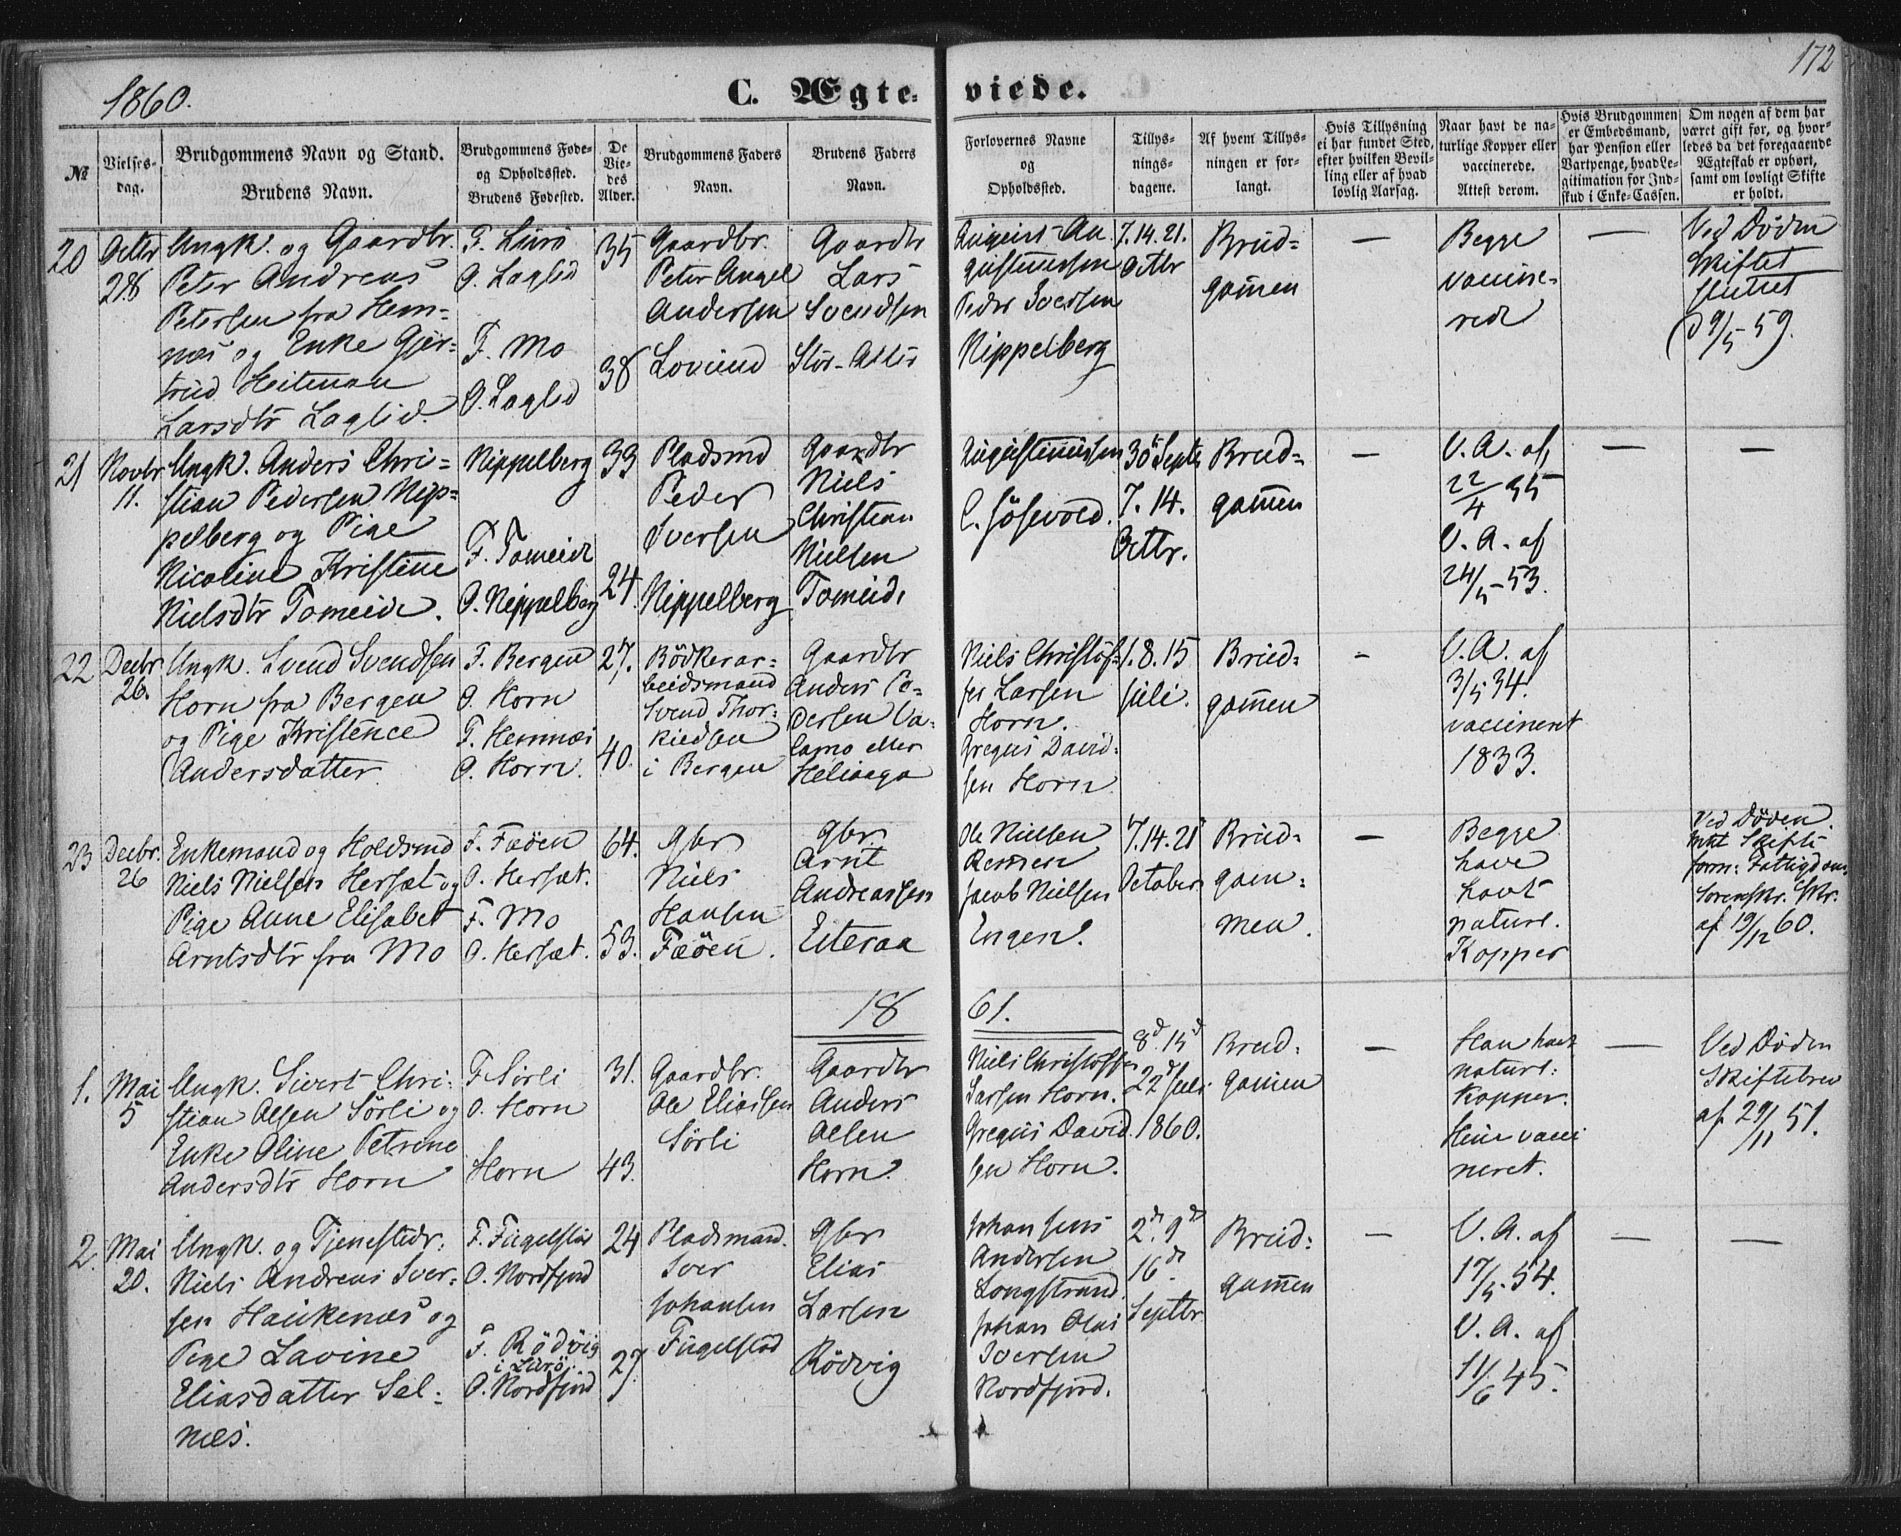 172
1860.
C. Ægte- viede.
№
Vielses-
dag.
Brudgommens Navn og Stand.
Brudens Navn.
Brudgommens Føde-
og Opholdssted.
Brudens Fødested.
De
Vie-
des
Alder.
Brudgommens Faders
Navn.
Brudens Faders
Navn.
Forlovernes Navne
og
Opholdssted.
Tillys-
nings-
dagene.
Af hvem Tillys-
ningen er for-
langt.
Hvis Tillysning
ei har fundet Sted,
efter hvilken Bevil-
ling eller af hvad
lovlig Aarsag.
Naar havt de na-
turlige Kopper eller
vaccinerede.
Attest derom.
Hvis Brudgommen
er Embedsmand,
har Pension eller
Vartpenge, hvad Le-
gitimation for Ind-
skud i Enke-Cassen.
Om nogen af dem har
været gift før, og hvor-
ledes da det foregaaende
Ægteskab er ophørt,
samt om lovligt Skifte
er holdt.
20
Octbr
28
Ungk. og Gaardbr.
Peter Andreas
Petersen fra Hem-
næs og Enke Gjer-
trud Heitman
Larsdtr Laglid.
F. Lurö
O. Laglid
F. Mo
O. Laglid
35
38
Gaardbr.
Peter Angel
Andersen
Lovund
Gaardbr
Lars
Svendsen
Stor-Alter
August Au-
gustinussen
Peder Iversen
Nippelberg
7. 14. 21.
Octbr
Brud=
gommen
—
Begge
vaccine-
rede
—
Ved Døden
Skiftet
sluttet
d 9/5 59.
21
Novbr
11.
Ungk. Anders Chri=
stian Pedersen Nip=
pelberg og Pige
Nicoline Kristine
Nielsdtr Tomeide.
Nippelberg
F. Tomeide
O. Nippelberg
33
24.
Pladsmd
Peder
Iversen
Nippelberg
Gaardbr
Niels
Christian
Nielsen
Tomeid.
Augustinussen
C. Sösevold.
30te Septr
7. 14.
Octbr.
Brud=
gommen
—
V. A. af
22/4 35
V. A. af
24/5 53.
—
—
22
Decbr
26.
Ungk. Svend Svendsen
Horn fra Bergen
og Pige Kristence
Andersdatter
F. Bergen
O. Horn
F. Hemnæs
O. Horn.
27.
40.
Bödkerar-
beidsmand
Svend Thor-
kildsen
i Bergen
Gaardbr
Anders Pe-
dersen Va-
lamo eller
Heliaaga
Niels Christof-
fer Larsen
Horn.
Gregus David-
sen Horn
1. 8. 15
Juli.
Brud=
gommen
—
V. A. af
3/5 34.
vaccineret
1833.
23
Decbr.
26
Enkemand og Holdsmd
Niels Nielsen Hersæt og
Pige Anne Elisabet
Arntsdtr fra Mo
F. Fæöen
O. Hersæt.
F. Mo
O. Hersæt.
64.
53.
Gbr
Niels
Hansen
Fæöen.
Gbr
Arnt
Andreassen
Eiteraa
Ole Nielsen
Jacob Nielsen
Engen.
7. 14. 21
October
Brud=
gom=
men.
—
Begge
have
havt
naturl.
Kopper
Ved Døden.
Intet Skifte
form: Fattigdom.
Sorenskr. Skr.
af 19/12 60.
18 61.
1.
Mai
5
Ungk. Sivert Chri-
stian Olsen Sörli og
Enke Oline Petrine
Andersdtr Horn
F. Sörli
O. Horn
Horn
31.
43.
Gaardbr.
Ole Eliassen
Sörli
Gaardbr
Anders
Olsen
Horn.
Niels Christoffer
Larsen Horn.
Gregus David-
sen Horn.
8d. 15d
22d Juli
1860.
Brud=
gommen
—
Han havt
naturl.
Kopper.
Hun vacci
neret.
—
Ved Døden
Skiftebrev
af 29/11 51.
2.
Mai
20.
Ungk. og Tjenestedr.
Niels Andreas Iver-
sen Haukenæs og
Pige Lavine
Eliasdatter Sel-
næs.
F. Fugelstad
O. Nordfjord
F. Rödvig
i Lurö.
O. Nordfjord
24
27.
Pladsmand.
Iver
Johansen
Fugelstad
Gbr
Elias
Larsen
Rödvig
Johan Jens
Andersen
Langstrand.
Johan Olai
Iversen
Nordfjord.
2d. 9d
16de
Septbr
Brud=
gommen
—
V. A. af
17/5 54.
V. A. af
11/6 45.
—
—